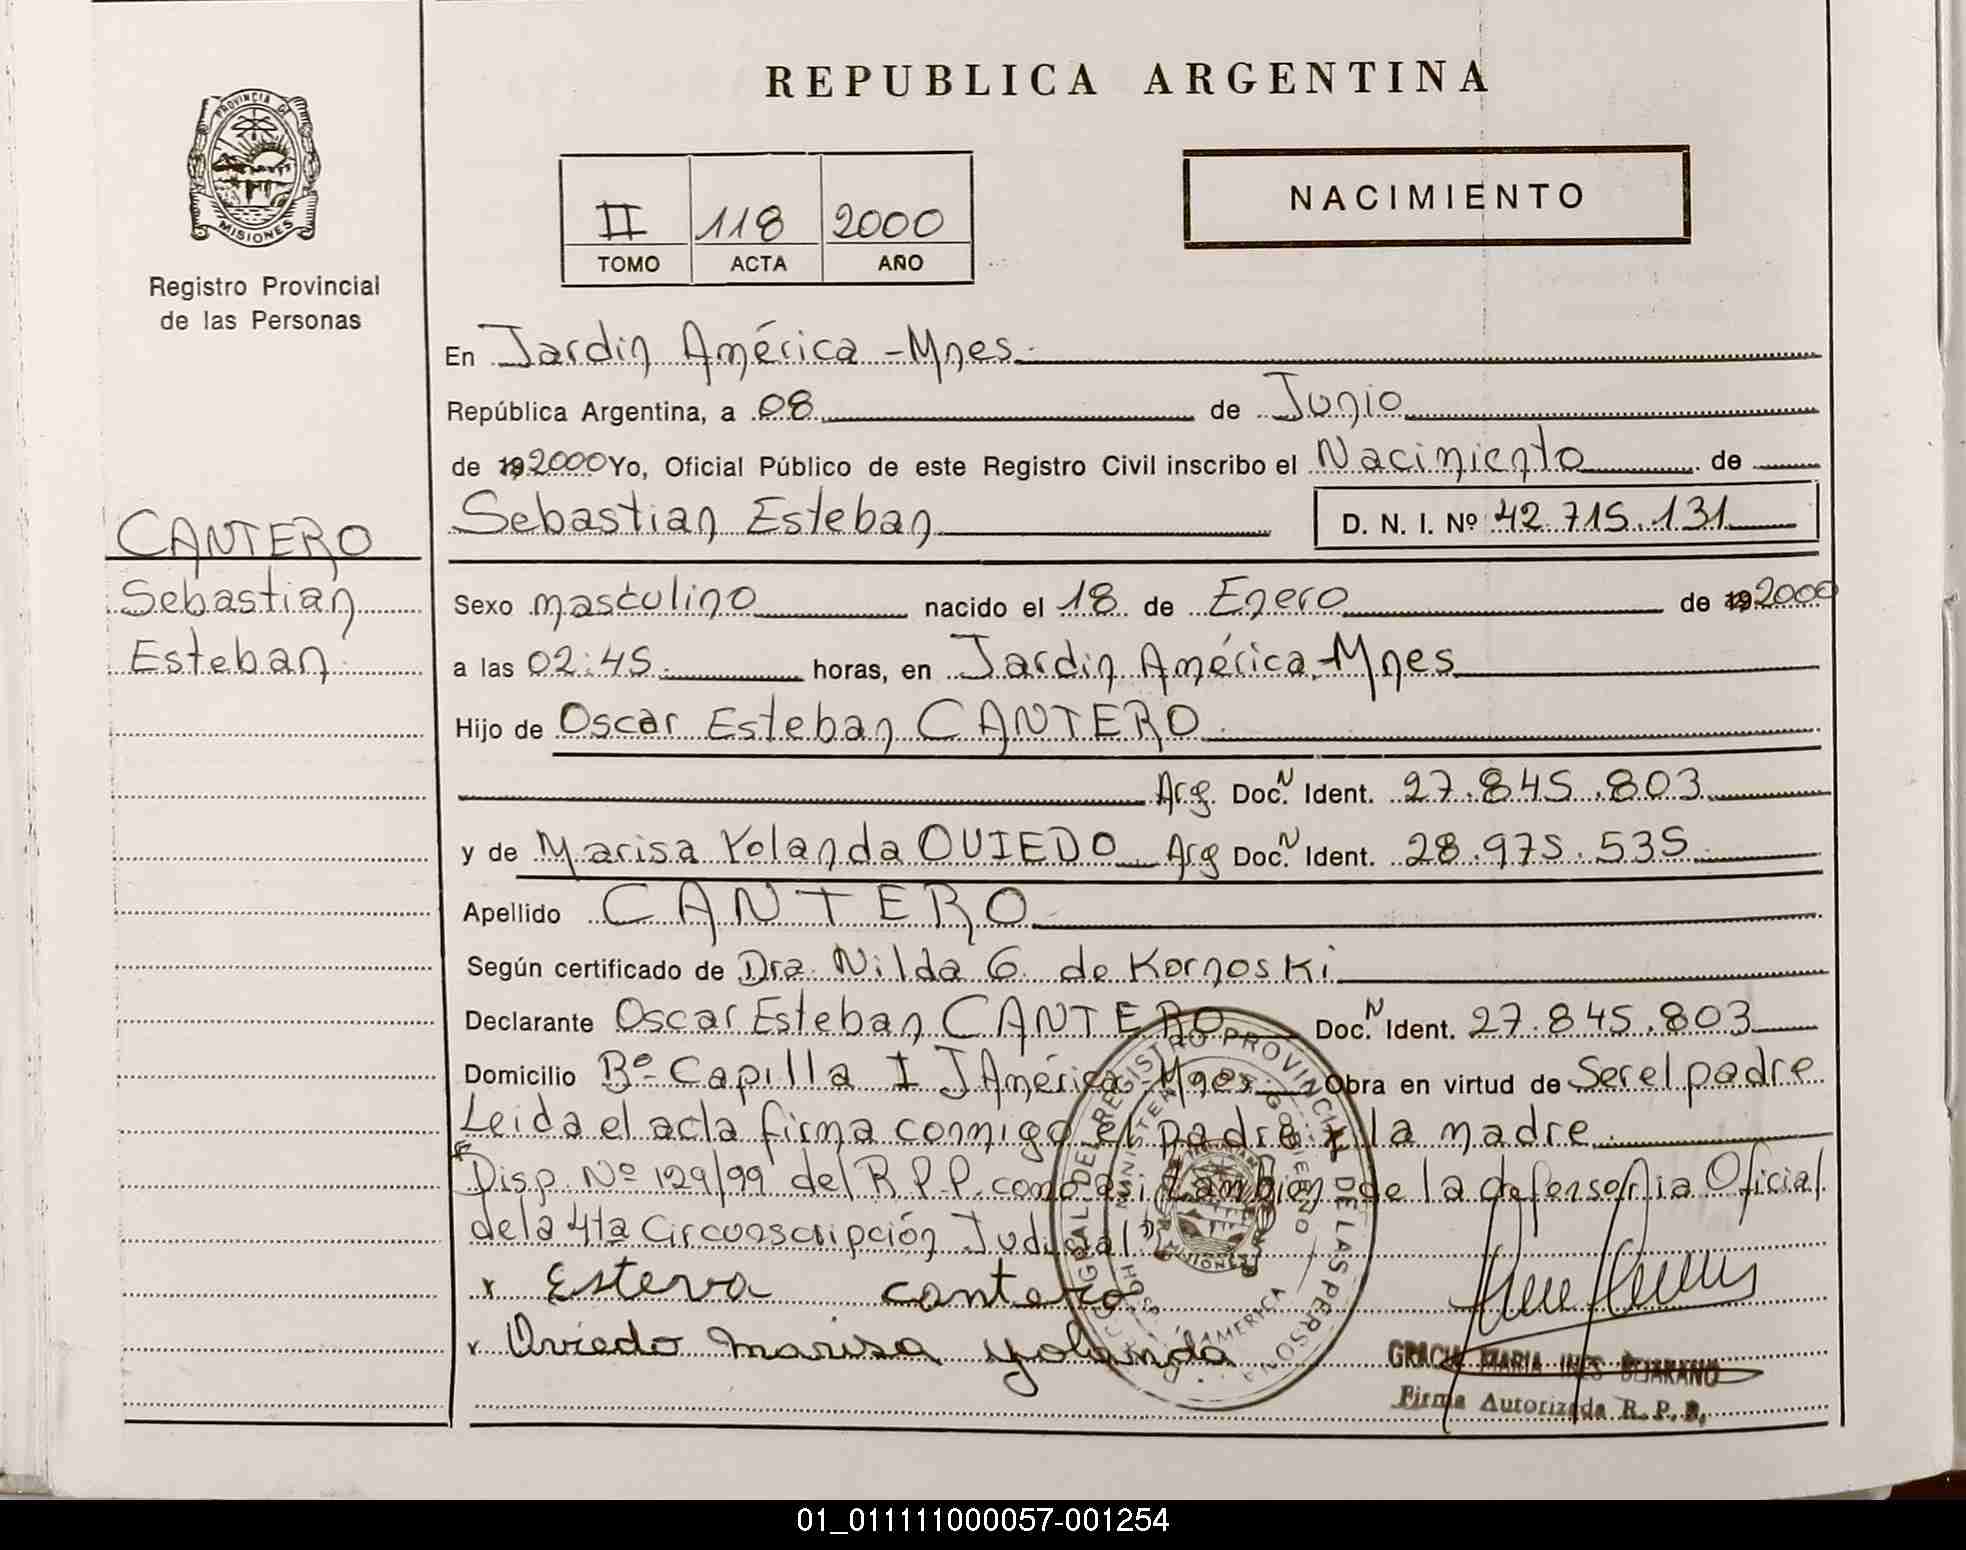 PROVINCIA DE
MISIONES
Registro Provincial
de las Personas
CANTERO
Sebastian
Esteban
REPUBLICA ARGENTINA
II 118 2000
TOMO ACTA AÑO
NACIMIENTO
En Jardin América - Mnes.
República Argentina, a 08 de Junio
de 19 2000 Yo, Oficial Público de este Registro Civil inscribo el Nacimiento de
Sebastian Esteban D. N. I. Nº 42.715.131
Sexo masculino nacido el 18 de Enero de 19 2000
a las 02:45 horas, en Jardin América - Mnes
Hijo de Oscar Esteban CANTERO
Arg. Doc. N Ident. 27.845.803
y de Marisa Yolanda OVIEDO Arg Doc. N Ident. 28.975.535
Apellido CANTERO
Según certificado de Dra. Nilda G. de Kornoski
Declarante Oscar Esteban CANTERO Doc. N Ident. 27.845.803
Domicilio Bº Capilla I J América - Mnes. Obra en virtud de Ser el padre
Leida el acta firma conmigo el padre y la madre
Disp. Nº 129/99 del R.P.P. como asi tambien de la defensoria Oficial
de la 4ta Circunscripción Judicial"
x Esteva cantero
x Oviedo marisa yolanda
REGISTRO PROVINCIAL DE LAS PERSONAS
MINISTERIO DE GOBIERNO
MISIONES
AMERICA
MARIA INES BEJARANO
Firma Autorizada R. P. P.
01_011111000057-001254